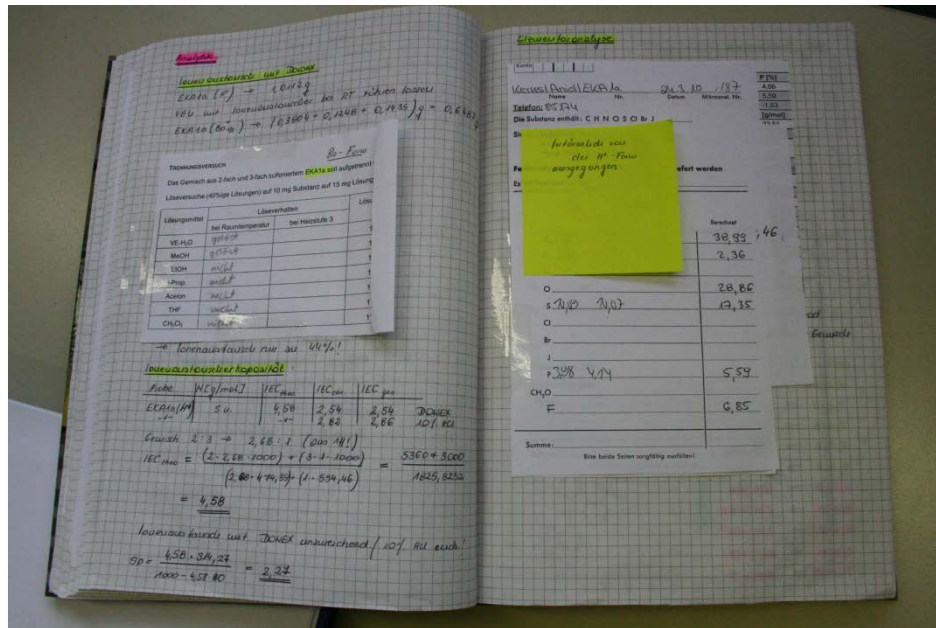 Analytik:
Ionenaustausch mit DOWEX
EKA1a (H⁺) → 1,0112g
VEW mit Ionenaustauscher bei RT rühren lassen
→ (0,3604 + 0,1448 + 0,1435) g =
Ba-Form
TRENNUNGSVERSUCH
Das Gemisch aus 2-fach und 3-fach sulfoniertem EKA1a soll aufgetrennt
Löseversuche (40%ige Lösungen) auf 10 mg Substanz auf 15 mg Lösung
Lösungsmittel Löseverhalten
bei Raumtemperatur bei Heizstufe 3
VE-H₂O gelöst
MeOH gelöst
EtOH nicht
i-Prop. nicht
Aceton nicht
THF nicht
CH₂Cl₂ nicht
→ Ionenaustausch nur zu 44%!
Ionenaustauscherkapazität:
Probe M[g/mol] IEC theo. IEC IEC
EKA1a (H⁺) s.u. 4,58 2,54 2,54 DOWEX
-"- -"- 2,82 2,86 10%. HCl
Gemisch 2:3 → 2,68 : 1
IEC theo = (2 · 2,68 · 1000) + (3 · 1 · 1000) = 5360 + 3000
(2,68 · 474,39) + (1 · 554,46) 1825,8252
= 4,58
Ionenaustausch mit DOWEX unzureichend / 10%. HCl auch!
SD = 4,58 · 314,27 = 2,27
1000 - 4,58 · 80
Elementaranalyse
Konto
EKA1a 24.3.10 187
Name Nr. Datum Mikroanal. Nr.
Telefon: 85574
Die Substanz enthält: C H N O S Cl Br J
P [%]
4,06
5,59
-1,53
[g/mol]
der H⁺-Form
ausgegangen.
efert werden
Berechnet
38,99 ; 46
2,36
O 28,86
S 17,35
Cl
Br
J
P 3,98 4,14 5,59
CH₃O
F 6,85
Summe:
Bitte beide Seiten sorgfältig ausfüllen!
Gemisch